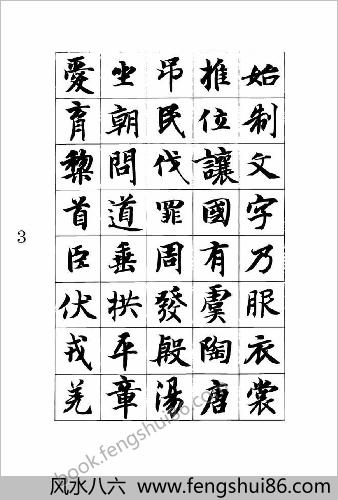 始制文字乃服衣裳
推位讓國有虞陶唐
吊民伐罪周發殷湯
坐朝問道垂拱平章
愛育黎首臣伏戎羌
3
book.fengshui86.com
风水八六 www.fengshui86.com